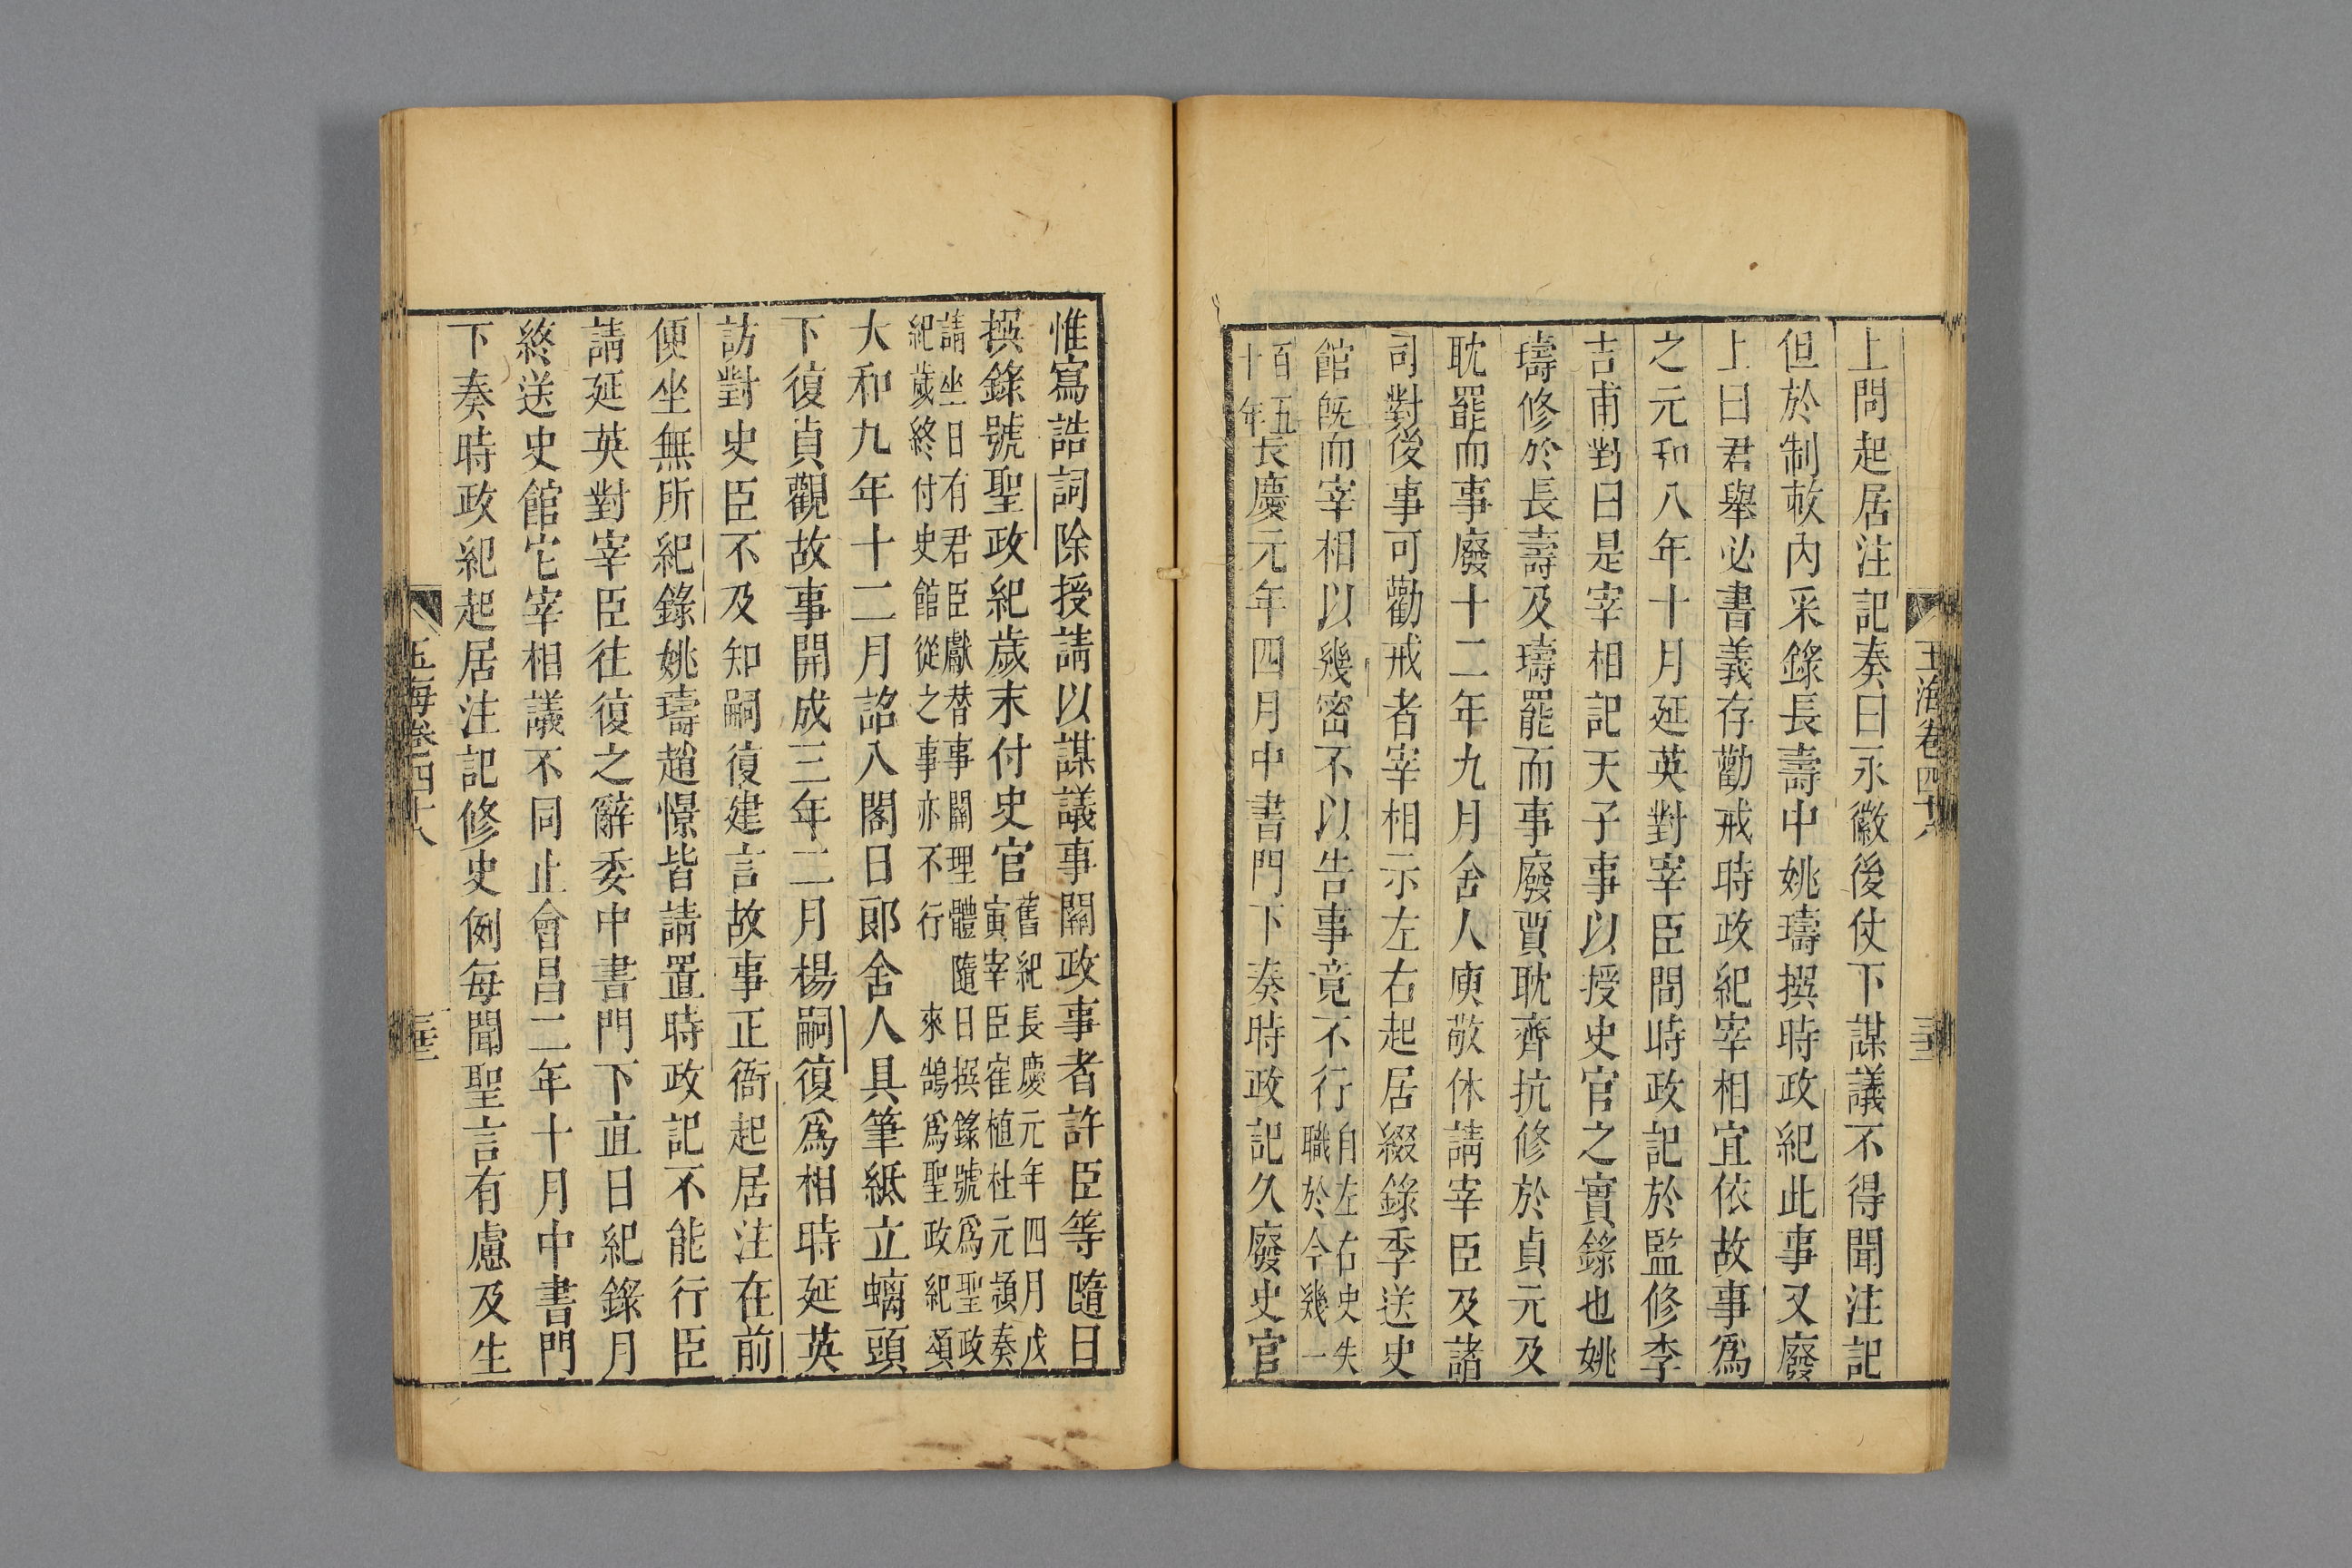 上問起居注記奏曰永徽後仗下謀議不得聞注記
但於制敕內采錄長壽中姚璹撰時政紀此事又廢
上曰君舉必書義存勸戒時政紀宰相宜依故事爲
之元和八年十月延英對宰臣問時政記於監修李
吉甫對曰是宰相記天子事以授史官之實錄也姚
璹修於長壽及璹罷而事廢賈耽齊抗修於貞元及
耽罷而事廢十二年九月舍人庾敬休請宰臣及諸
司對後事可勸戒者宰相示左右起居綴錄季送史
館旣而宰相以幾密不以告事竟不行自左右史失職於今幾一
百五十年長慶元年四月中書門下奏時政記久廢史官
玉海卷四十八
惟寫誥詞除授請以謀議事關政事者許臣等隨日
撰錄號聖政紀歲末付史官舊紀長慶元年四月戊寅宰臣崔植杜元頴奏
請坐日有君臣獻替事關理體隨日撰錄號爲聖政紀歲終付史館從之事亦不行 來鵠爲聖政紀頌
大和九年十二月詔入閣日郎舍人具筆紙立螭頭
下復貞觀故事開成三年二月楊嗣復爲相時延英
訪對史臣不及知嗣復建言故事正衙起居注在前
便坐無所紀錄姚璹趙憬皆請置時政記不能行臣
請延英對宰臣往復之辭委中書門下直日紀錄月
終送史館它宰相議不同止會昌二年十月中書門
下奏時政紀起居注記修史例每聞聖言有慮及生
玉海卷四十八